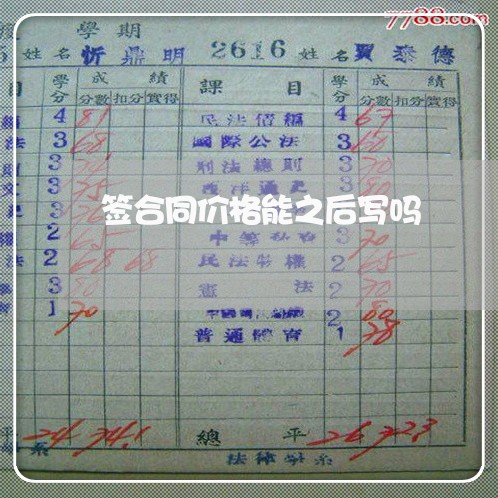 7788.com
學期
姓名 忻鼎明 2616 姓名 賈泰德
目 學分 成績 課目 學分 成績
分數 扣分 實得 分數 扣分 實得
4 81 民法債編 4 67
法 3 68 國際公法 3 60
3 刑法總則 3 70
文 3 75 西洋通史 3 80
3
签合同价格能之后写吗
2 65 3 70
法 2 68 68 民法物權 2 65
3 80 憲法 2 70
1 70 2 80
普通體育 1 78
平 24 74.1 總平 26 72.3
系 法律學系